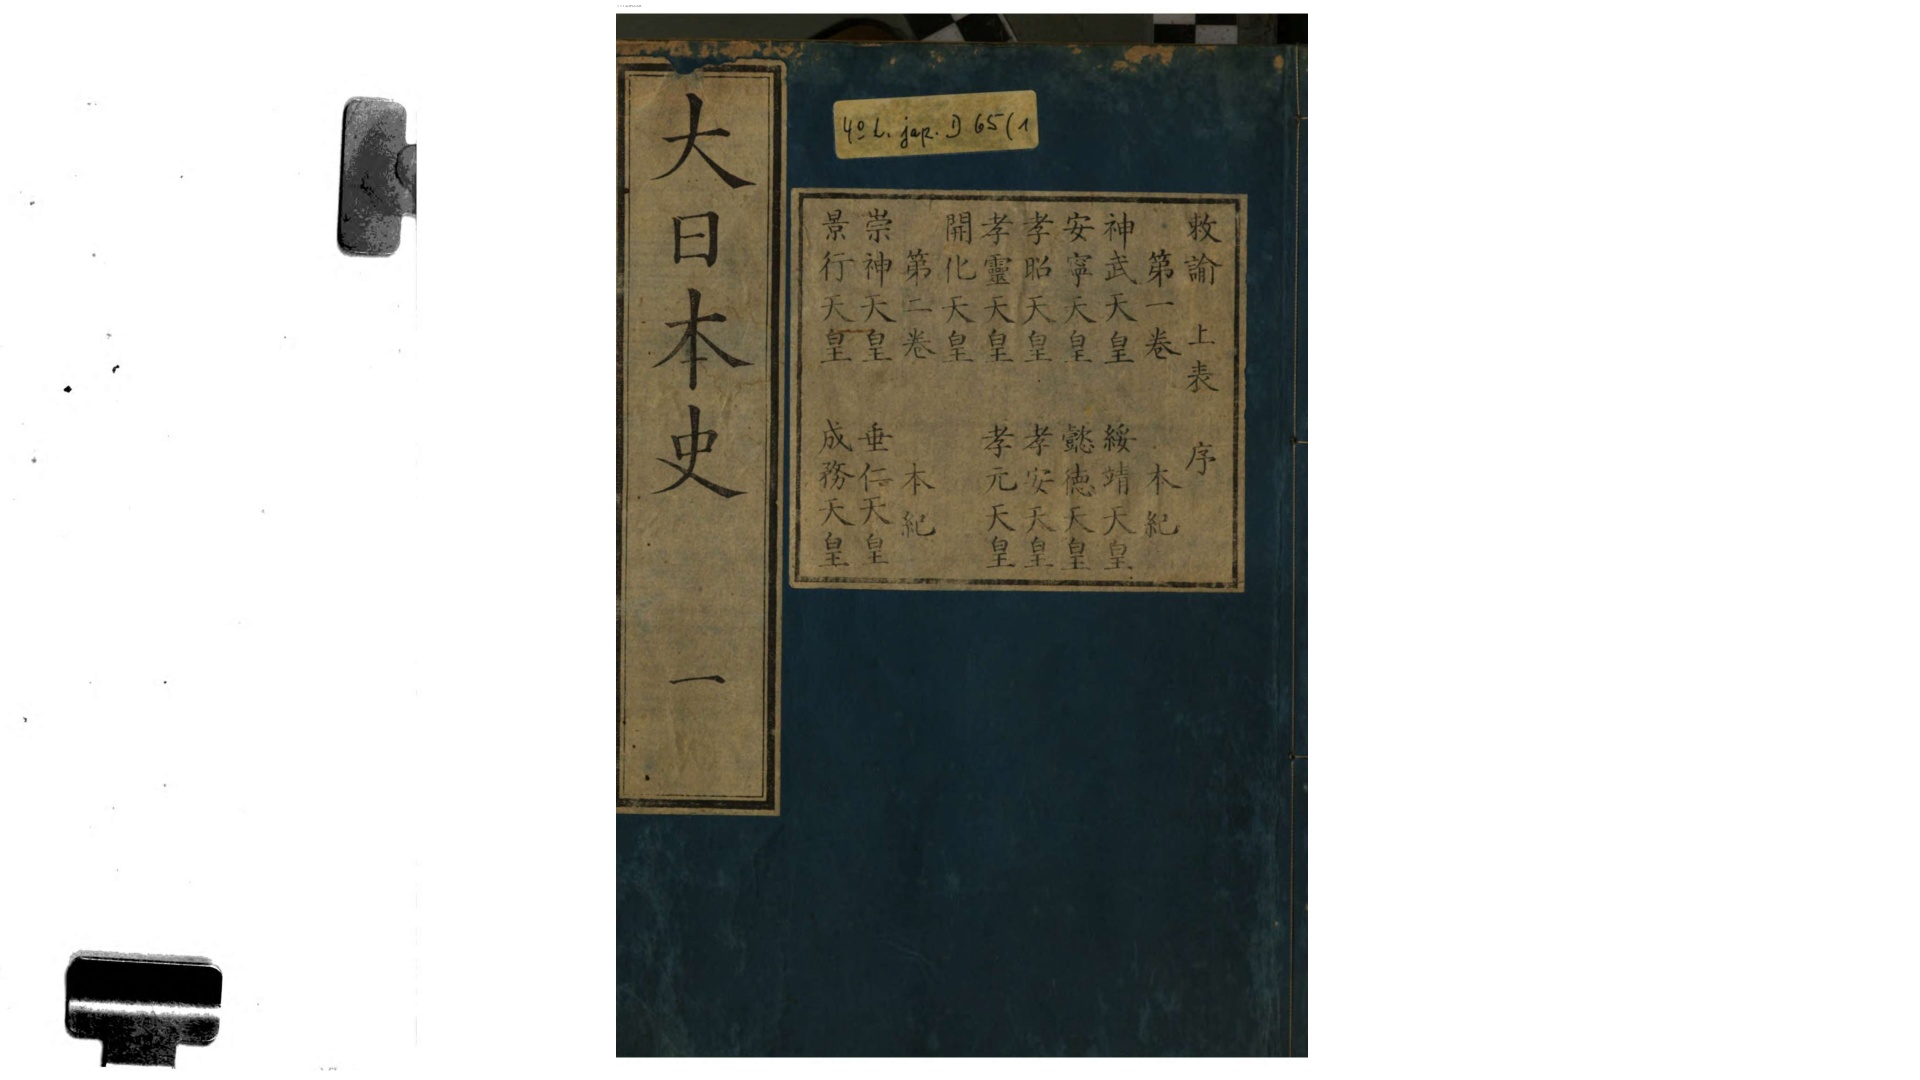 4º L. jap. D 65(1
敕諭 上表 序
第一卷 本紀
神武天皇 綏靖天皇
安寧天皇 懿徳天皇
孝昭天皇 孝安天皇
孝靈天皇 孝元天皇
開化天皇
第二卷 本紀
崇神天皇 垂仁天皇
景行天皇 成務天皇
大日本史 一